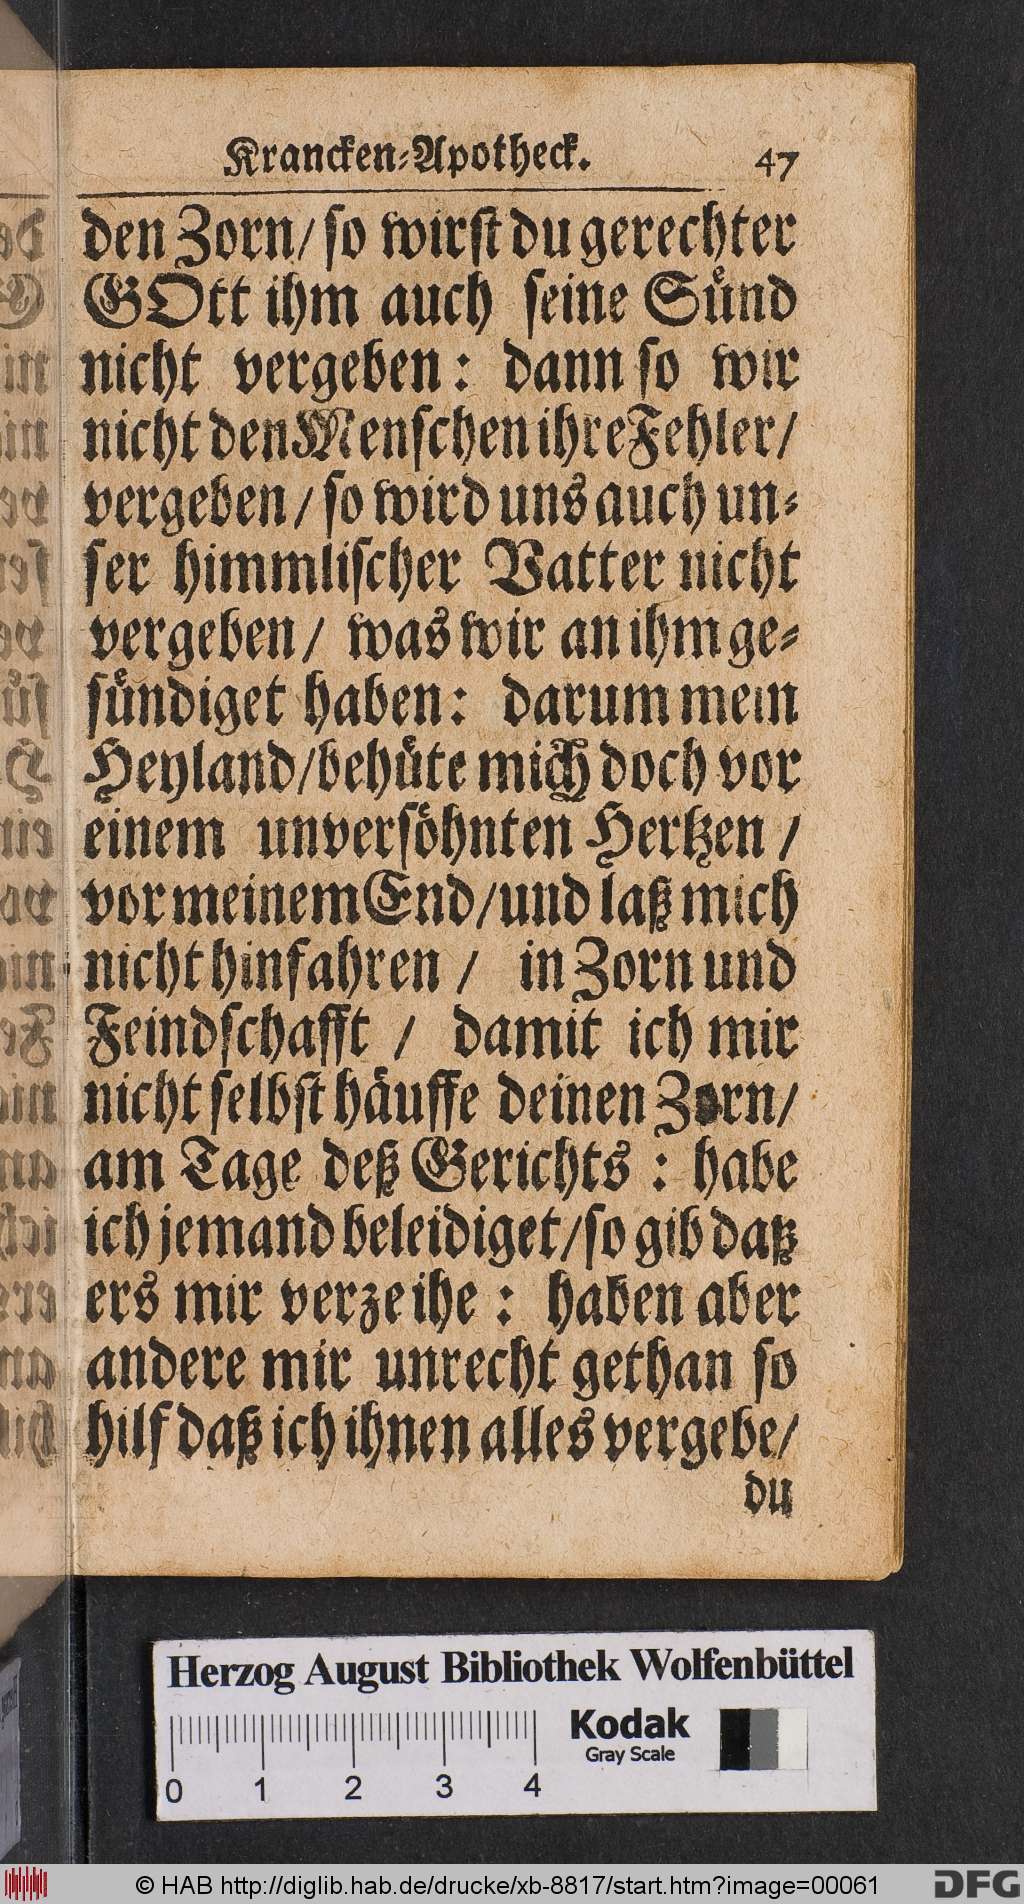 Krancken-Apotheck. 47
den Zorn/ so wirst du gerechter
GOtt ihm auch seine Suͤnd
nicht vergeben: dann so wir
nicht den Menschen ihre Fehler/
vergeben/ so wird uns auch un-
ser himmlischer Vatter nicht
vergeben/ was wir an ihm ge-
suͤndiget haben: darum mein
Heyland/ behuͤte mich doch vor
einem unversoͤhnten Hertzen/
vor meinem End/ und laß mich
nicht hinfahren/ in Zorn und
Feindschafft/ damit ich mir
nicht selbst haͤuffe deinen Zorn/
am Tage deß Gerichts: habe
ich jemand beleidiget/ so gib daß
ers mir verzeihe: haben aber
andere mir unrecht gethan so
hilf daß ich ihnen alles vergebe/
du
Herzog August Bibliothek Wolfenbüttel
Kodak
Gray Scale
0 1 2 3 4
© HAB http://diglib.hab.de/drucke/xb-8817/start.htm?image=00061
DFG